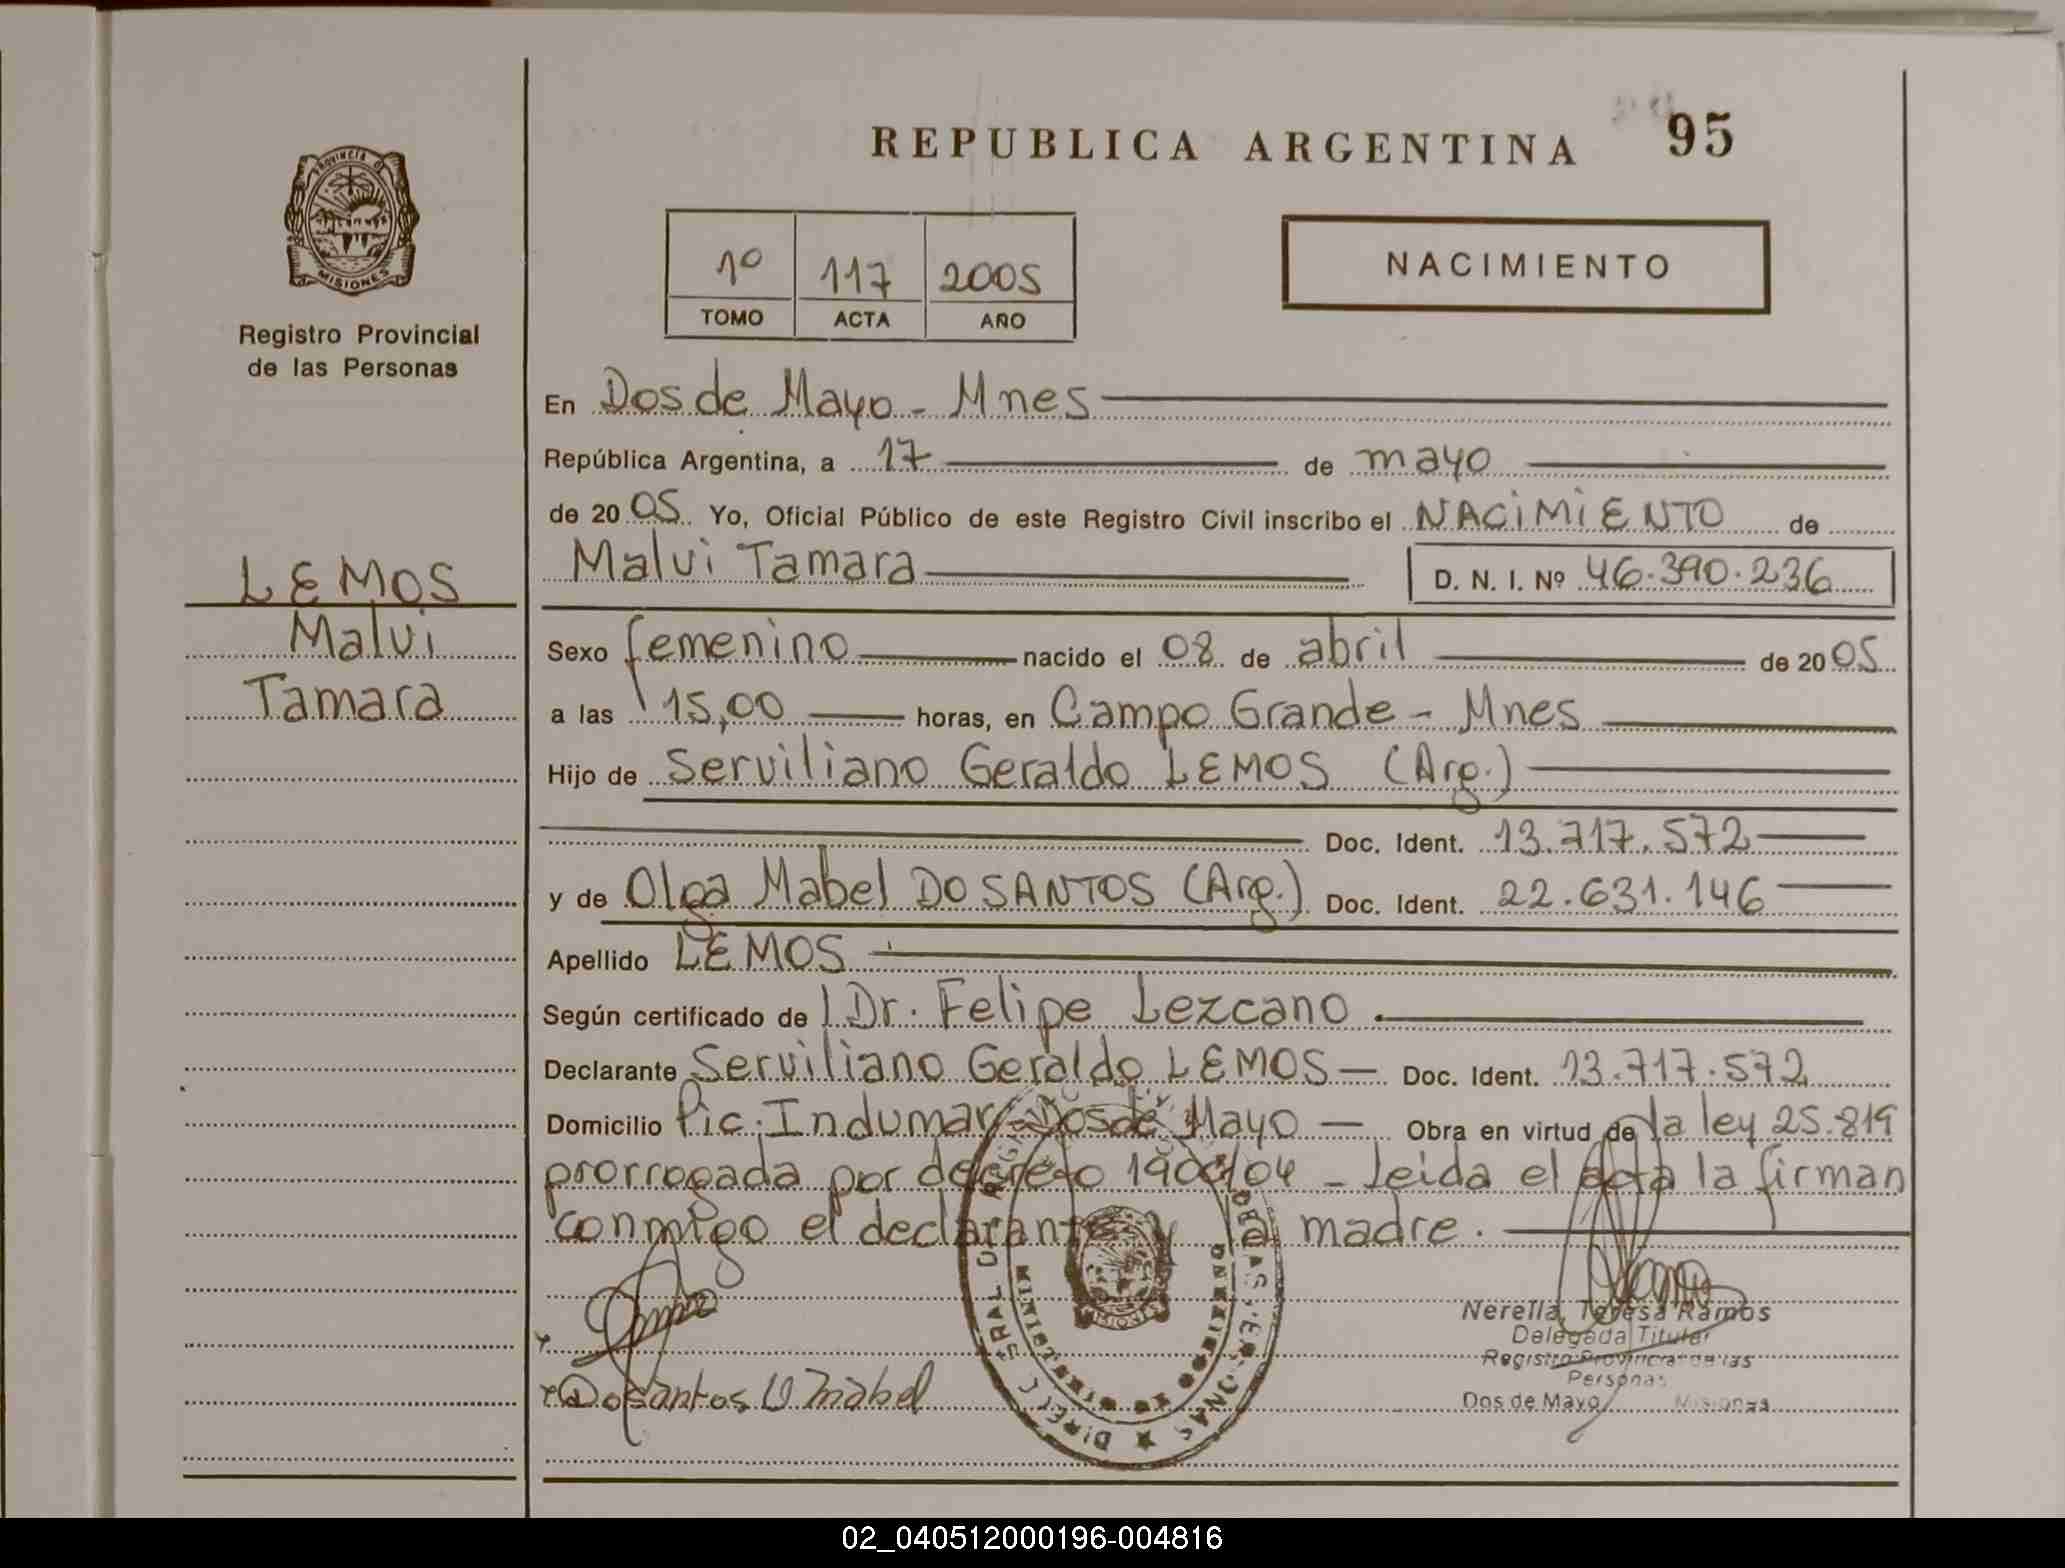 REPUBLICA ARGENTINA 95
PROVINCIA DE
MISIONES
Registro Provincial
de las Personas
1º 117 2005
TOMO ACTA AÑO
NACIMIENTO
En Dos de Mayo - Mnes
República Argentina, a 17 de mayo
de 2005 Yo, Oficial Público de este Registro Civil inscribo el NACIMIENTO de
Malvi Tamara D. N. I. Nº 46.390.236
LEMOS
Malvi
Tamara
Sexo femenino nacido el 08 de abril de 2005
a las 15,00 horas, en Campo Grande - Mnes
Hijo de Serviliano Geraldo LEMOS (Arg.)
Doc. Ident. 13.717.572
y de Olga Mabel DO SANTOS (Arg.) Doc. Ident. 22.631.146
Apellido LEMOS
Según certificado de Dr. Felipe Lezcano
Declarante Serviliano Geraldo LEMOS Doc. Ident. 13.717.572
Domicilio Pic. Indumar Dos de Mayo Obra en virtud de la ley 25.819
prorrogada por decreto 1900/04 - leida el acta la firman
conmigo el declarante y la madre.
Dosantos O Mabel
Nerella, Teresa Ramos
Delegada Titular
Registro Provincial de las
Personas
Dos de Mayo Misiones
02_040512000196-004816